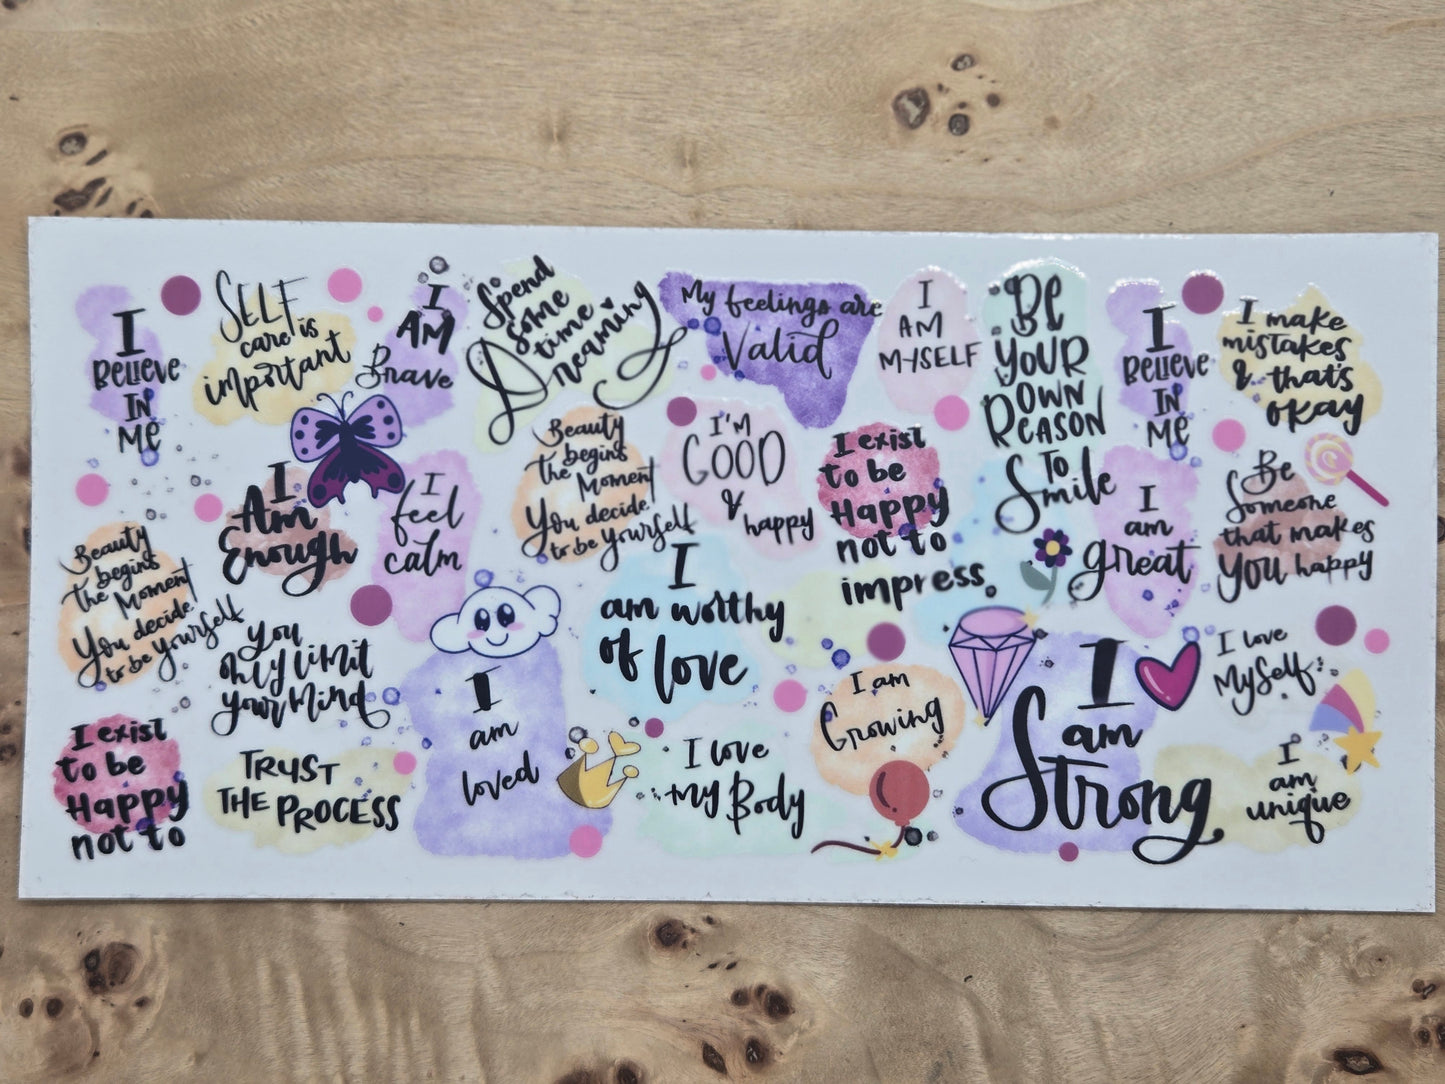 I
BELIEVE
IN
ME
SELF
care is
important
I
AM
Brave
Spend
some
time
Dreaming
My feelings are
Valid
I
AM
MYSELF
BE
YOUR
OWN
REASON
TO
Smile
I
BELIEVE
IN
ME
I make
mistakes
& that's
okay
I
Am
Enough
I
feel
calm
Beauty
begins
the Moment
You decide
to be Yourself
I'M
GOOD
&
happy
I exist
to be
Happy
not to
impress.
I
am
great
Be
Someone
that makes
You happy
Beauty
begins
the Moment
You decide
to be Yourself
You
only limit
your Mind
I
am
loved
I
am worthy
of love
I am
Growing
I
am
Strong
I love
MySelf
I exist
to be
Happy
not to
TRUST
THE PROCESS
I love
my Body
I
am
unique